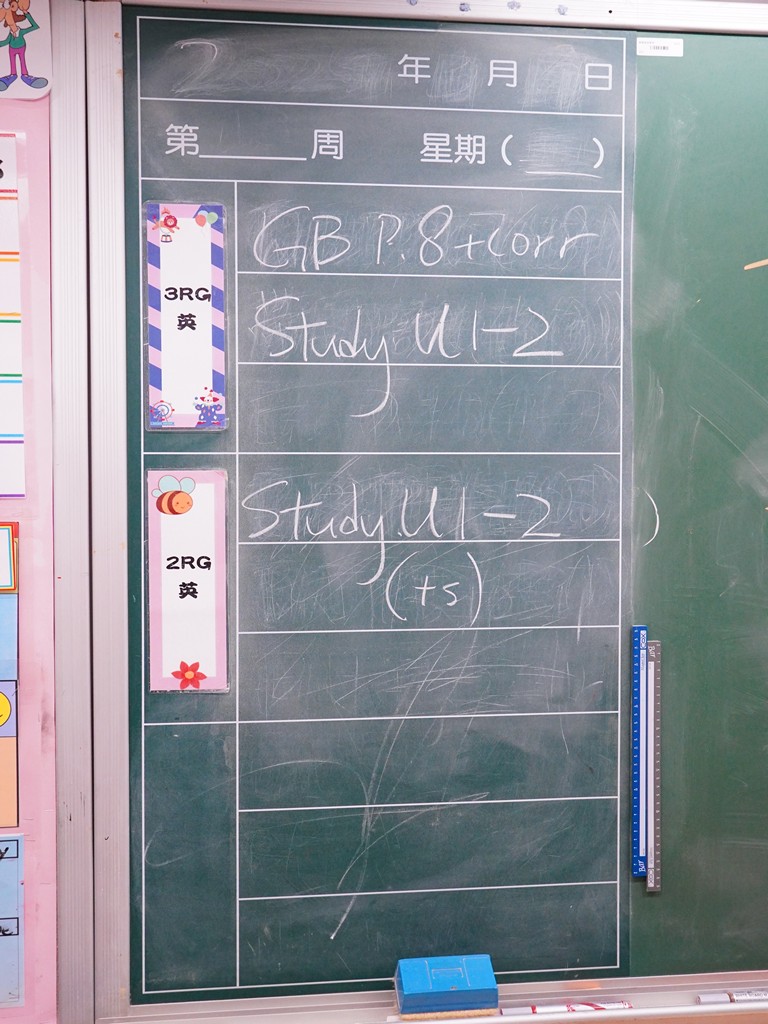 2 年 月 日
第 周 星期( )
3RG
英
GB P.8+corr
Study U1-2
2RG
英
Study U1-2
(+s)